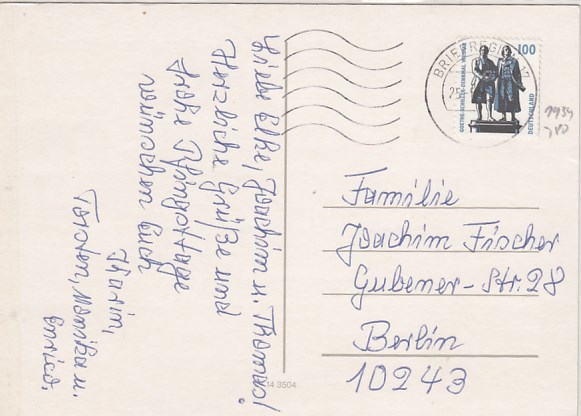 Liebe Elke, Joachim u. Thomas!
Herzliche Grüße und
frohe Pfingsttage
wünschen Euch
Karin,
Torsten, Monika u.
Enrico.
BRIEFREGION
25
GOETHE-SCHILLER-DENKMAL WEIMAR
100
DEUTSCHLAND
Familie
Joachim Fischer
Gubener-Str. 28
Berlin
10243
14 3504